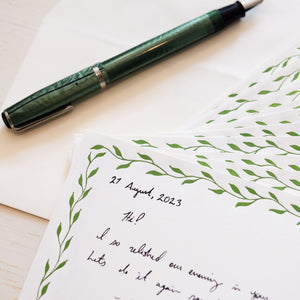 21 August, 2023
Hi!
I so relished our evening in your
Let's do it again